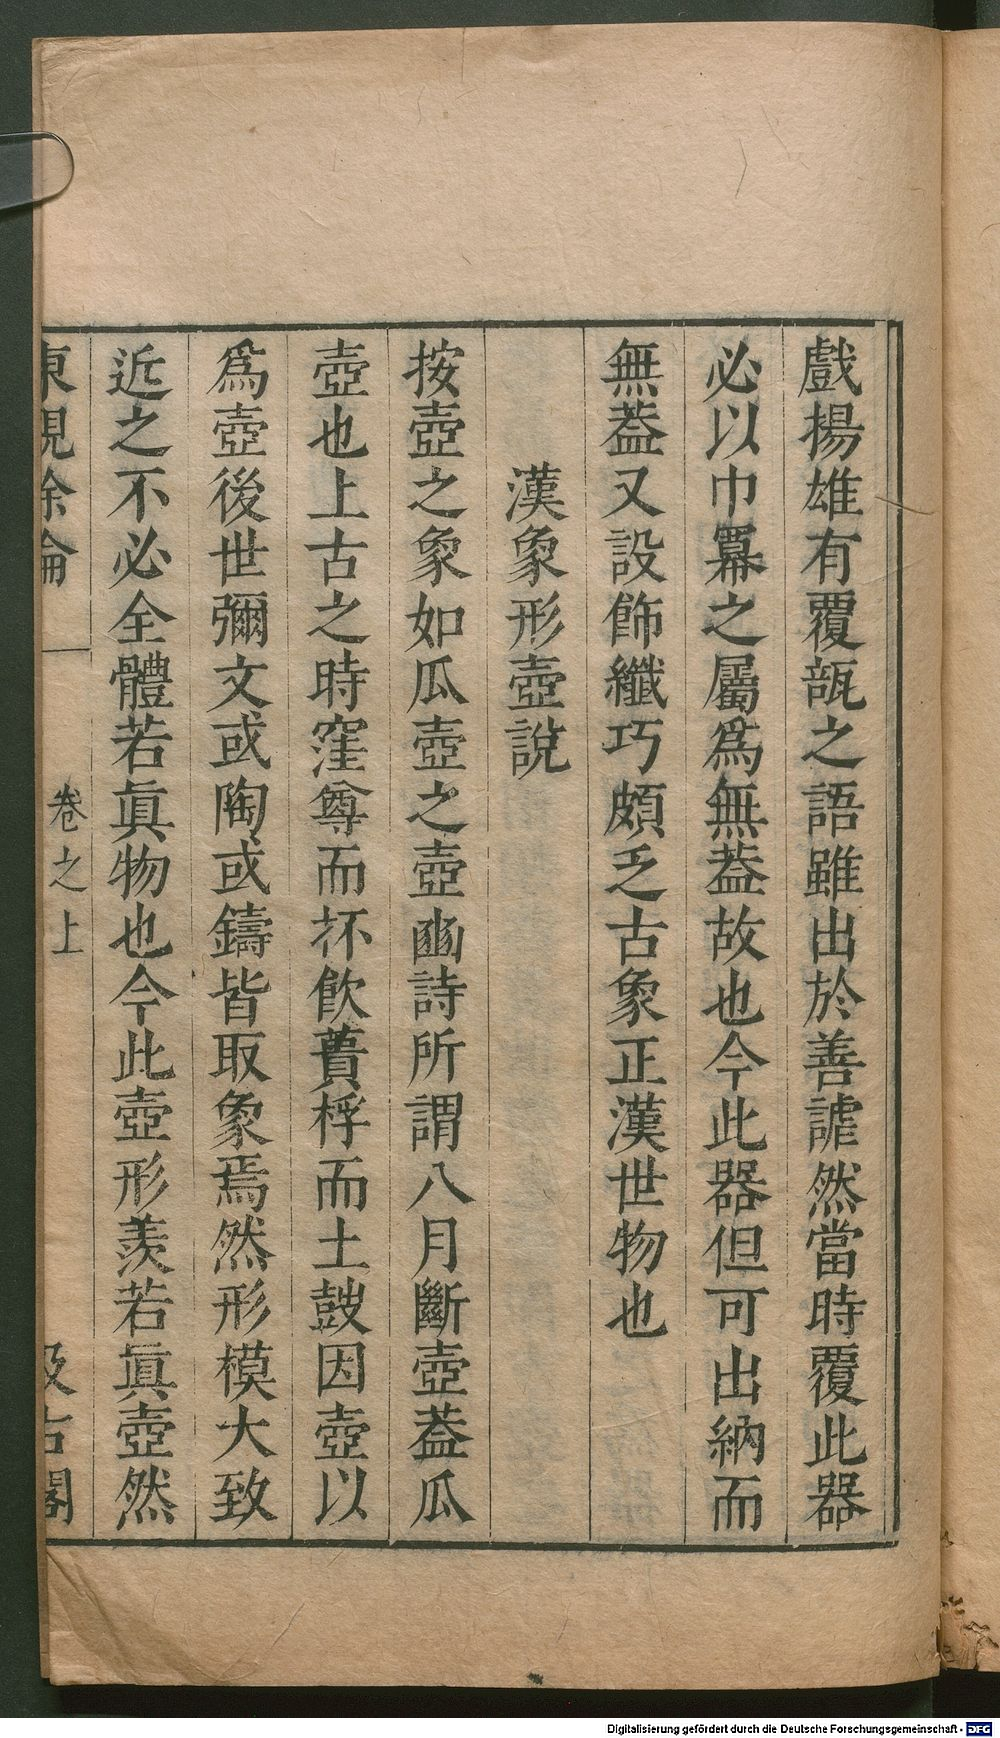 戲揚雄有覆瓿之語雖出於善謔然當時覆此器
必以巾冪之屬爲無葢故也今此器但可出納而
無葢又設飾纖巧頗乏古象正漢世物也
漢象形壺說
按壺之象如瓜壺之壺豳詩所謂八月斷壺葢瓜
壺也上古之時窪尊而抔飮蕢桴而土鼓因壺以
爲壺後世彌文或陶或鑄皆取象焉然形模大致
近之不必全體若眞物也今此壺形羨若眞壺然
東觀餘論 卷之上 汲古閣
Digitalisierung gefördert durch die Deutsche Forschungsgemeinschaft - DFG